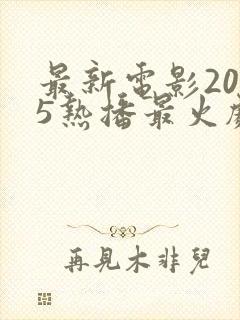 最新電影20
5熱播最火
再見木非兒